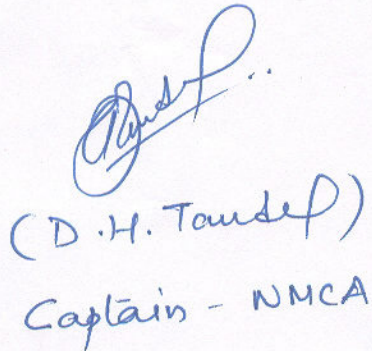 (D.H. Tandel)
Captain - NMCA